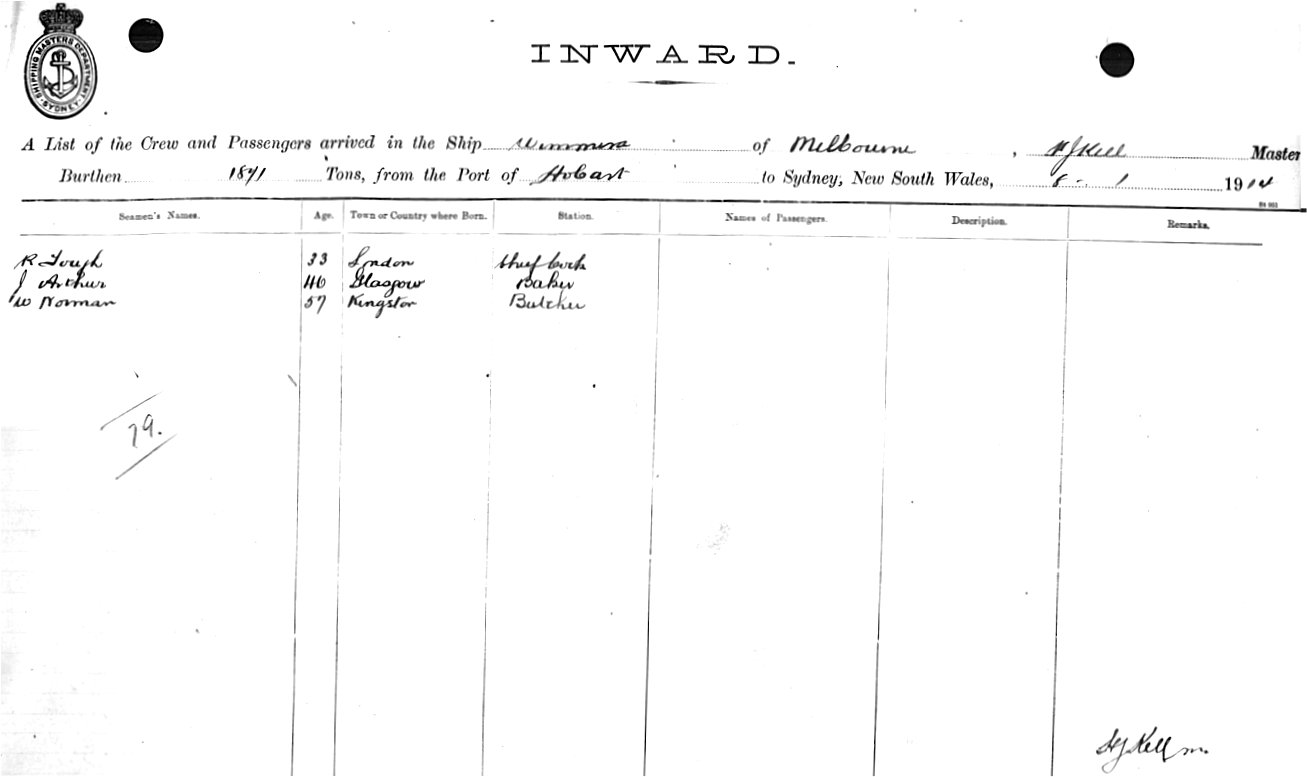 SHIPPING MASTERS DEPARTMENT SYDNEY
INWARD.
A List of the Crew and Passengers arrived in the Ship Wimmera of Melbourne, H J Kell Master
Burthen 1871 Tons, from the Port of Hobart to Sydney, New South Wales, 8 - 1 1914
Seamen's Names. Age. Town or Country where Born. Station. Names of Passengers. Description. Remarks.
R Gough 33 London Chief Cook
J Arthur 40 Glasgow Baker
W Norman 57 Kingston Butcher
79.
H J Kell